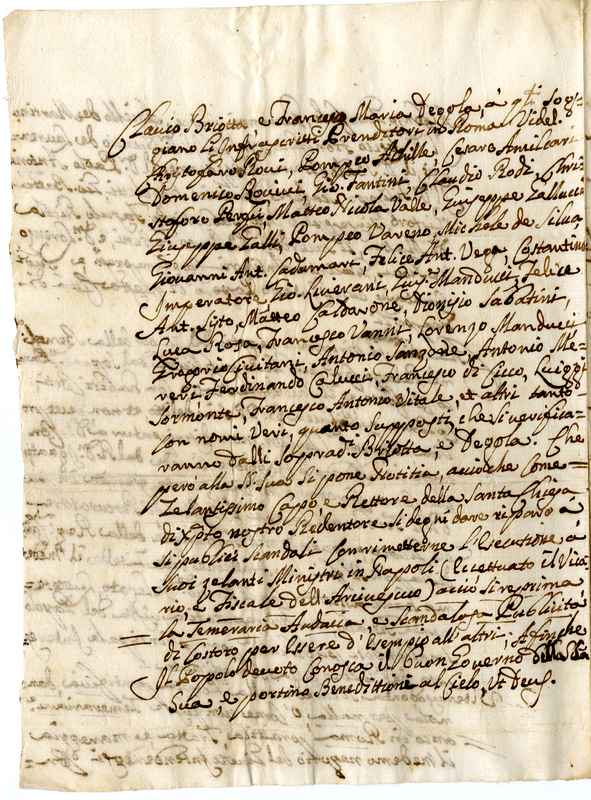 Clavio Briotta e Francesco Maria Degola, à q.ti sog=
giano l'Infrascritti Prenditori in Roma Videl.
Christofaro Rovi, Pompeo Achille, Cesaro
Domenico Gio. Fantini, Claudio Rodi, Chri=
stofaro Matteo Nicola Valle, Giuseppe Zallucca
Giuseppe Zalli, Pompeo Vareno Michele de Silva,
Giovanni Ant. Cadamari, Felice Ant. Vega, Costantino
Imperatore Gio. Liverani, Manducci, Felice
Ant. Lito, Matteo Caldarone, Dionisio Sabatini,
Luca Rosa, Francesco Vanni, Lorenzo Manducci
Gregorio Civitani, Antonio Sanzone, Antonio Me=
reri Ferdinando Colucci, Francesco di Cicco, Luiggi
Sormonte, Francesco Antonio Vitale, et altri tanto
con nomi Veri, quanto Supposti, che si verifica=
ranno dalli soprad.i Briotta, e Degola. Che
però alla S.tà Sua si pone Notitia, accioche Come=
Zelantissimo Capo, e Rettore della Santa Chiesa
di Xpto nostro Redentore si degni dare riparo a
si publici scandali con rimetterne l'Esecutione, à
suoi zelanti Ministri in Napoli (Eccettuato il Vica
rio, e Fiscale dell'Arcivescuo) acciò si reprima
la Temeraria Audacia e Scandalosa Publicità
di Costoro per Essere d'Esempio all'altri, Afinche
Il Popolo devoto Conosca il buon Governo della S.tà
Sua, e portino Benedittioni al Cielo, Ut Deus.